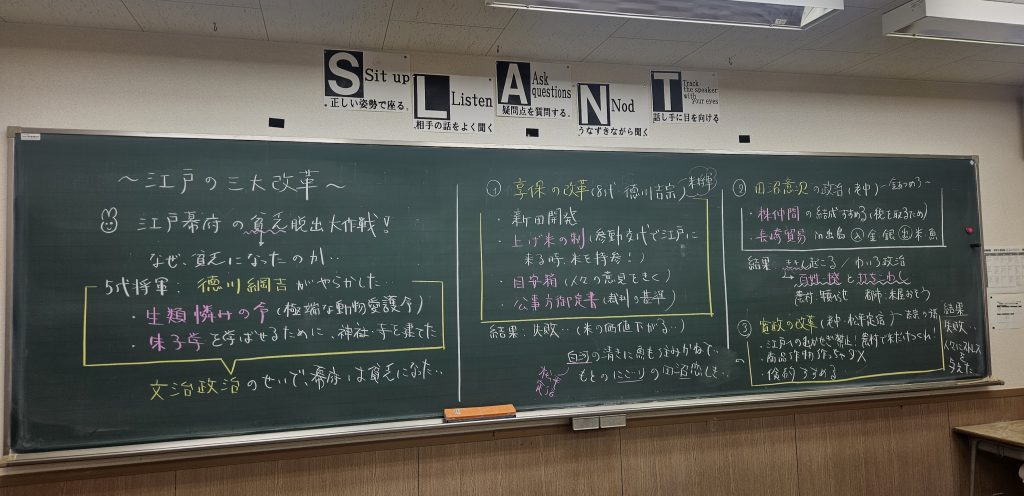 S Sit up
.正しい姿勢で座る.
L Listen
.相手の話をよく聞く
A Ask questions
疑問点を質問する.
N Nod
うなずきながら聞く
T Track the speaker with your eyes
話し手に目を向ける
〜江戸の三大改革〜
江戸幕府の貧乏脱出大作戦!
なぜ、貧乏になったのか‥
5代将軍: 徳川綱吉がやらかした‥
・生類憐みの令(極端な動物愛護令)
・朱子学を学ばせるために、神社・寺を建てた
文治政治のせいで、幕府は貧乏になった‥
① 享保の改革(8代 徳川吉宗) 米将軍
・新田開発
・上げ米の制(参勤交代で江戸に
来る時、米を持参!)
・目安箱(人々の意見をきく)
・公事方御定書(裁判の基準)
結果: 失敗‥(米の価値下がる‥)
白河の清きに魚も住みかねて‥
もとのにごりの田沼恋しき‥
② 田沼意次の政治(老中)
・株仲間の結成すすめる(税を取るため)
・長崎貿易 in出島 入金銀 出米魚
結果: ききん起こる/わいろ政治
→百姓一揆と打ちこわし
都市:米屋おそう
③ 寛政の改革(老中・松平定信)
・江戸への出かせぎ禁止!農村で米だけつくれ!
・商品作物作っちゃダメ
・倹約すすめる‥
結果
失敗‥
人々にストレス
を
与えた